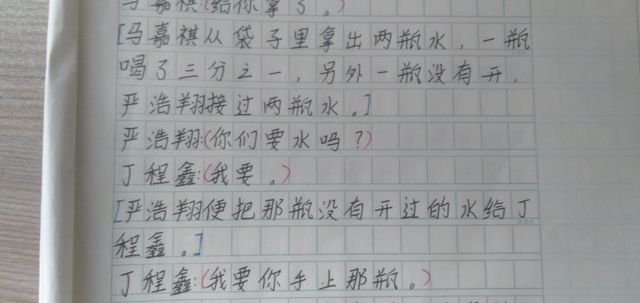 马嘉祺:(给你拿了。)
[马嘉祺从袋子里拿出两瓶水，一瓶
喝了三分之一，另外一瓶没有开，
严浩翔接过两瓶水。]
严浩翔:(你们要水吗？)
丁程鑫:(我要。)
[严浩翔便把那瓶没有开过的水给丁
程鑫。]
丁程鑫:(我要你手上那瓶。)